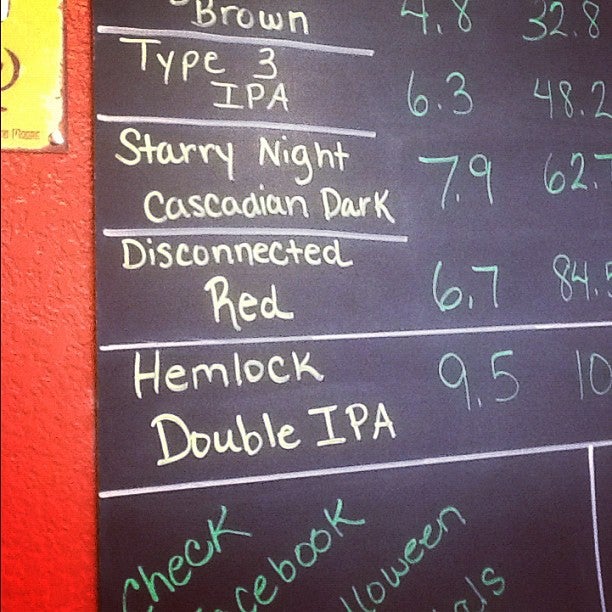 Brown 4.8 32.8
Type 3
IPA 6.3 48.2
Starry Night 7.9 62.7
Cascadian Dark
Disconnected
Red 6.7 84.5
Hemlock 9.5 10
Double IPA
Check
cebook
lloween
als